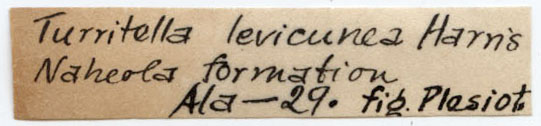 Turritella levicunea Harris
Naheola formation
Ala-29. fig. Plesiot.